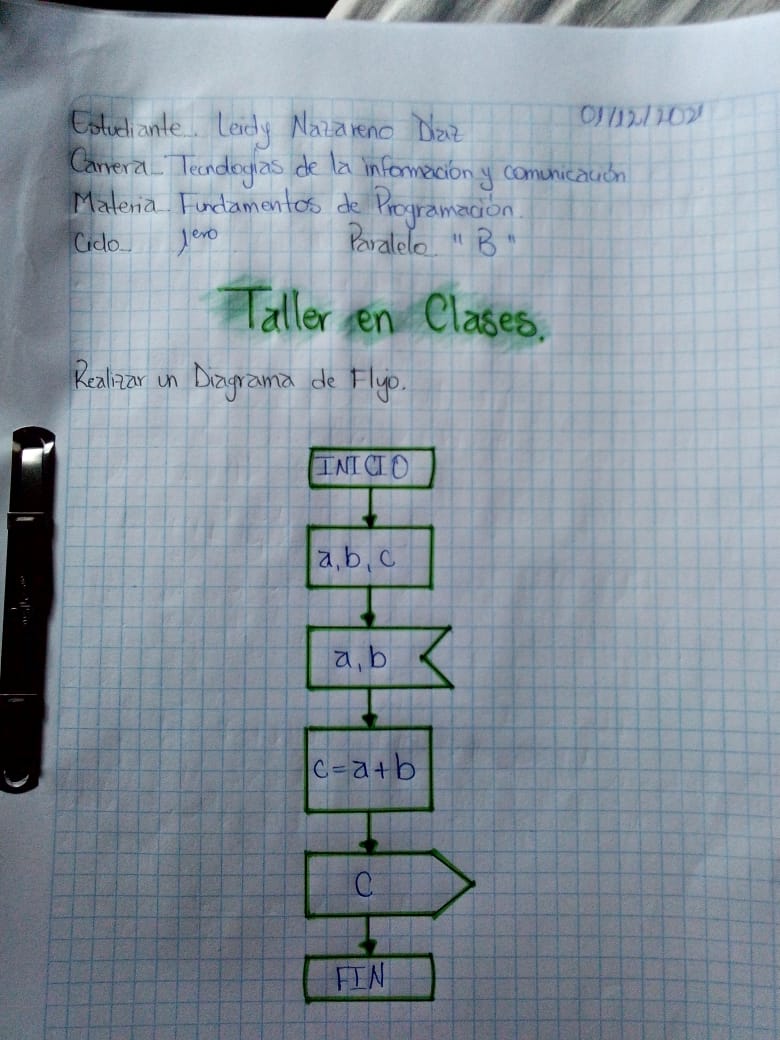 Estudiante.. Leidy Nazareno Díaz 01/12/2021
Carrera_ Tecnologías de la información y comunicación
Materia_ Fundamentos de Programación.
Ciclo_ 1ero Paralelo "B"
Taller en Clases.
Realizar un Diagrama de Flujo.
INICIO
a, b, c
a, b
c=a+b
C
FIN